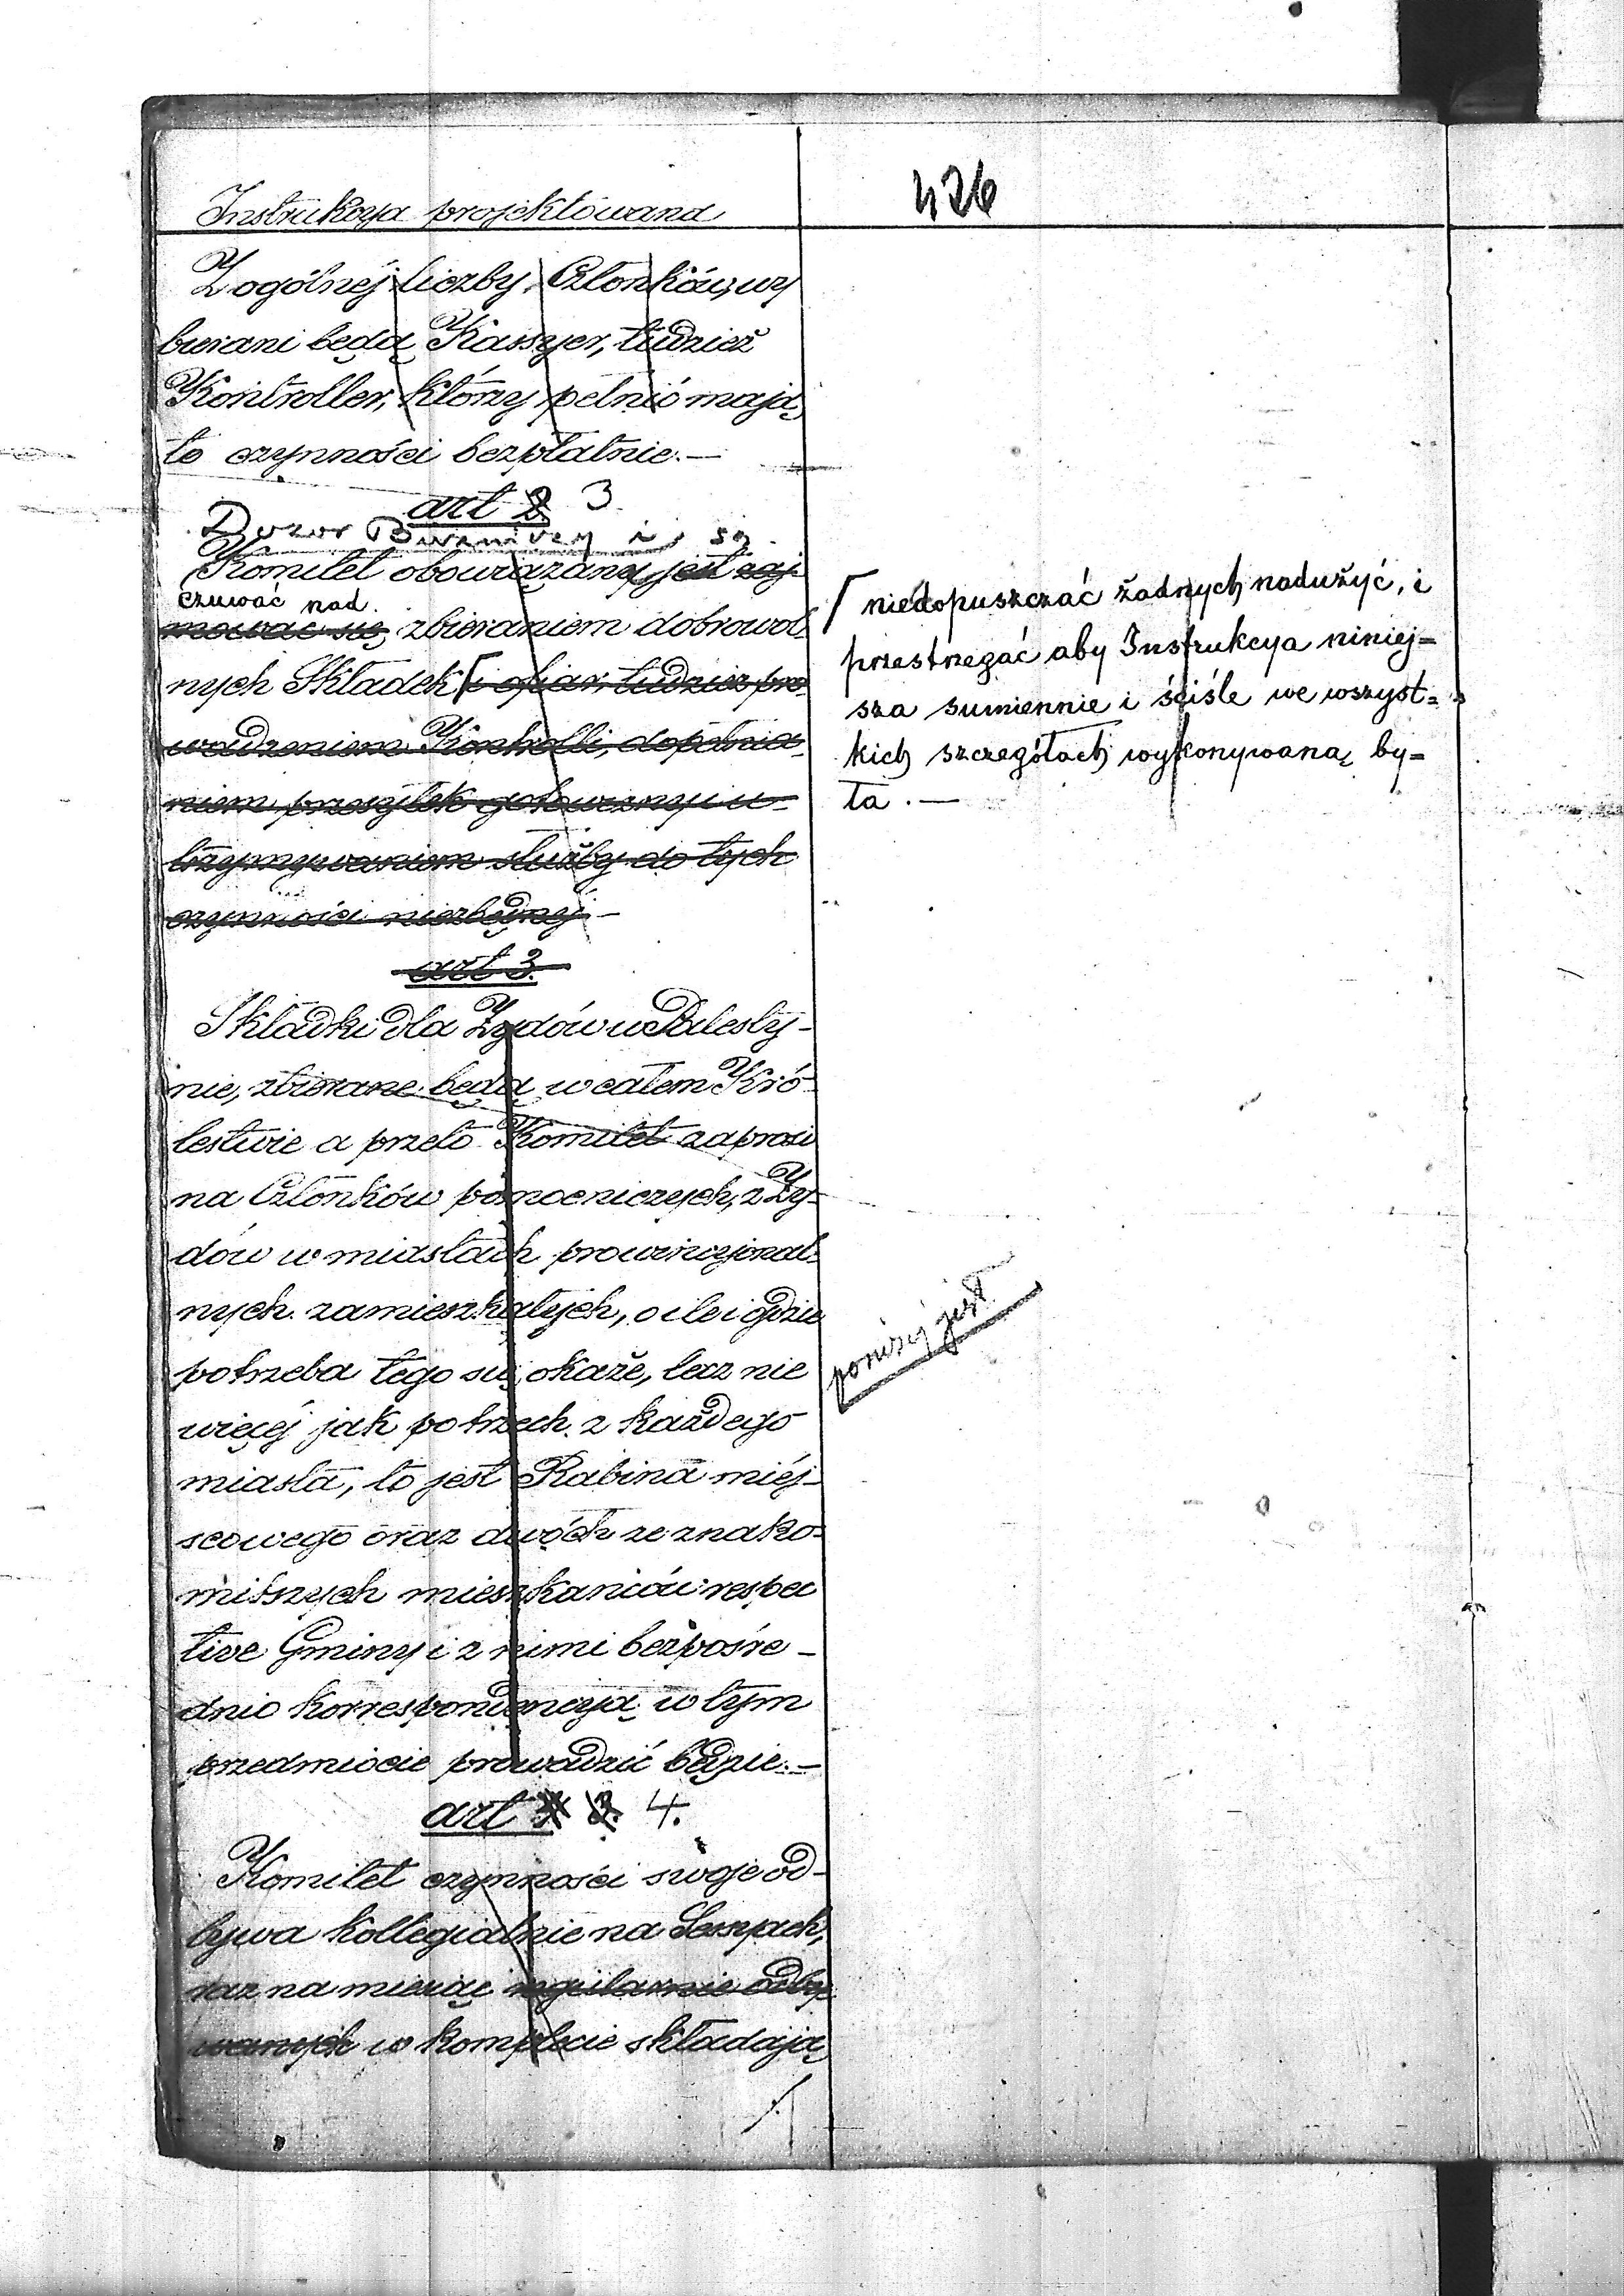 Instrukcya projektowana
426
Z ogólnéj liczby Członków, wy
bierani będą Kassyer, tudzież
Kontroller, którzy pełnić mają
te czynności bezpłatnie.—
art 2 3.
Dozor Bużniczy i są
Komitet obowiązany jest zaj
czuwać nad
mować się zbieraniem dobrowol
nych Składek i ofiar, tudzież pro
wadzeniem Kontrolli, dopełnia
niem przesyłek gotowizny i u
trzymywaniem służby do tych
czynności niezbędnéj —
art 3.
Składki dla Żydów w Palesty-
nie, zbierane będą w całem Kró
lestwie a przeto Komitet zaprosi
na Członków pomocniczych, z Ży-
dów w miastach prowincjonal-
nych zamieszkałych, o ile i gdzie
potrzeba tego się okaże, lecz nie
więcéj jak po trzech z każdego
miasta, to jest Rabina miéj-
scowego oraz dwóch ze znako-
mitszych mieszkańców respec
tive Gminy i z nimi bezpośre-
dnio korrespondencyą w tym
przedmiocie prowadzić będzie.—
art 4.
Komitet czynności swoje od-
bywa kollegialnie na Sessyach,
raz na miesiąc regularnie odby
wanych w komplecie składają
niedopuszczać żadnych nadużyć, i
przestrzegać aby Instrukcya niniej=
sza sumiennie i ściśle we wszyst=
kich szczegółach wykonywaną by=
ła.—
poniżéj jest